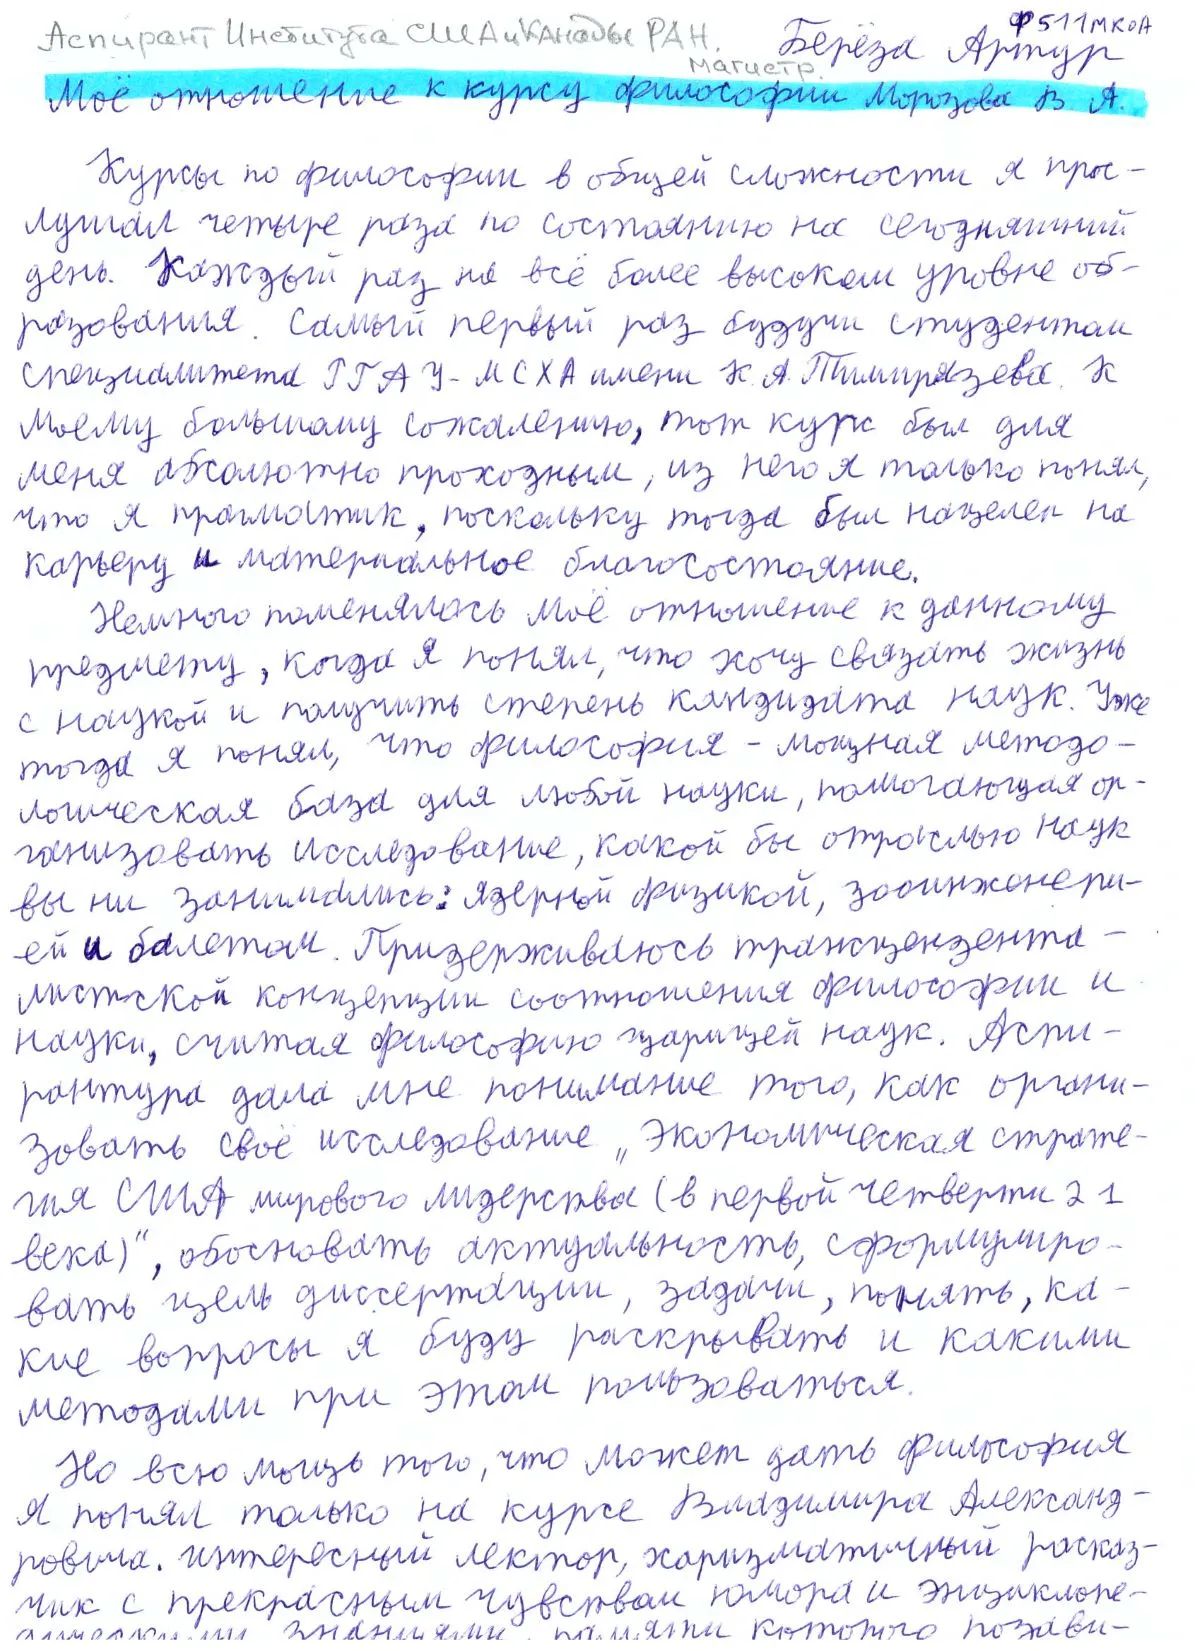 Аспирант Института США и Канады РАН.
магистр.
Ф511МКОА
Берёза Артур
Моё отношение к курсу философии Морозова В. А.
Курсы по философии в общей сложности я прос-
лушал четыре раза по состоянию на сегодняшний
день. Каждый раз на всё более высоком уровне об-
разования. Самый первый раз будучи студентом
специалитета РГАУ-МСХА имени К.А.Тимирязева. К
моему большому сожалению, тот курс был для
меня абсолютно проходным, из него я только понял,
что я прагматик, поскольку тогда был нацелен на
карьеру и материальное благосостояние.
Немного поменялось моё отношение к данному
предмету, когда я понял, что хочу связать жизнь
с наукой и получить степень кандидата наук. Уже
тогда я понял, что философия - мощная методо-
логическая база для любой науки, помогающая ор-
ганизовать исследование, какой бы отраслью наук
вы ни занимались: ядерной физикой, зооинженери-
ей и балетом. Придерживаюсь трансцендента-
листской концепции соотношения философии и
науки, считая философию царицей наук. Аспи-
рантура дала мне понимание того, как органи-
зовать своё исследование „Экономическая страте-
гия США мирового лидерства (в первой четверти 21
века)“, обосновать актуальность, сформулиро-
вать цель диссертации, задачи, понять, ка-
кие вопросы я буду раскрывать и какими
методами при этом пользоваться.
Но всю мощь того, что может дать философия
я понял только на курсе Владимира Александ-
ровича. Интересный лектор, харизматичный расказ-
чик с прекрасным чувством юмора и энциклопе-
дическими знаниями, памяти которого позави-